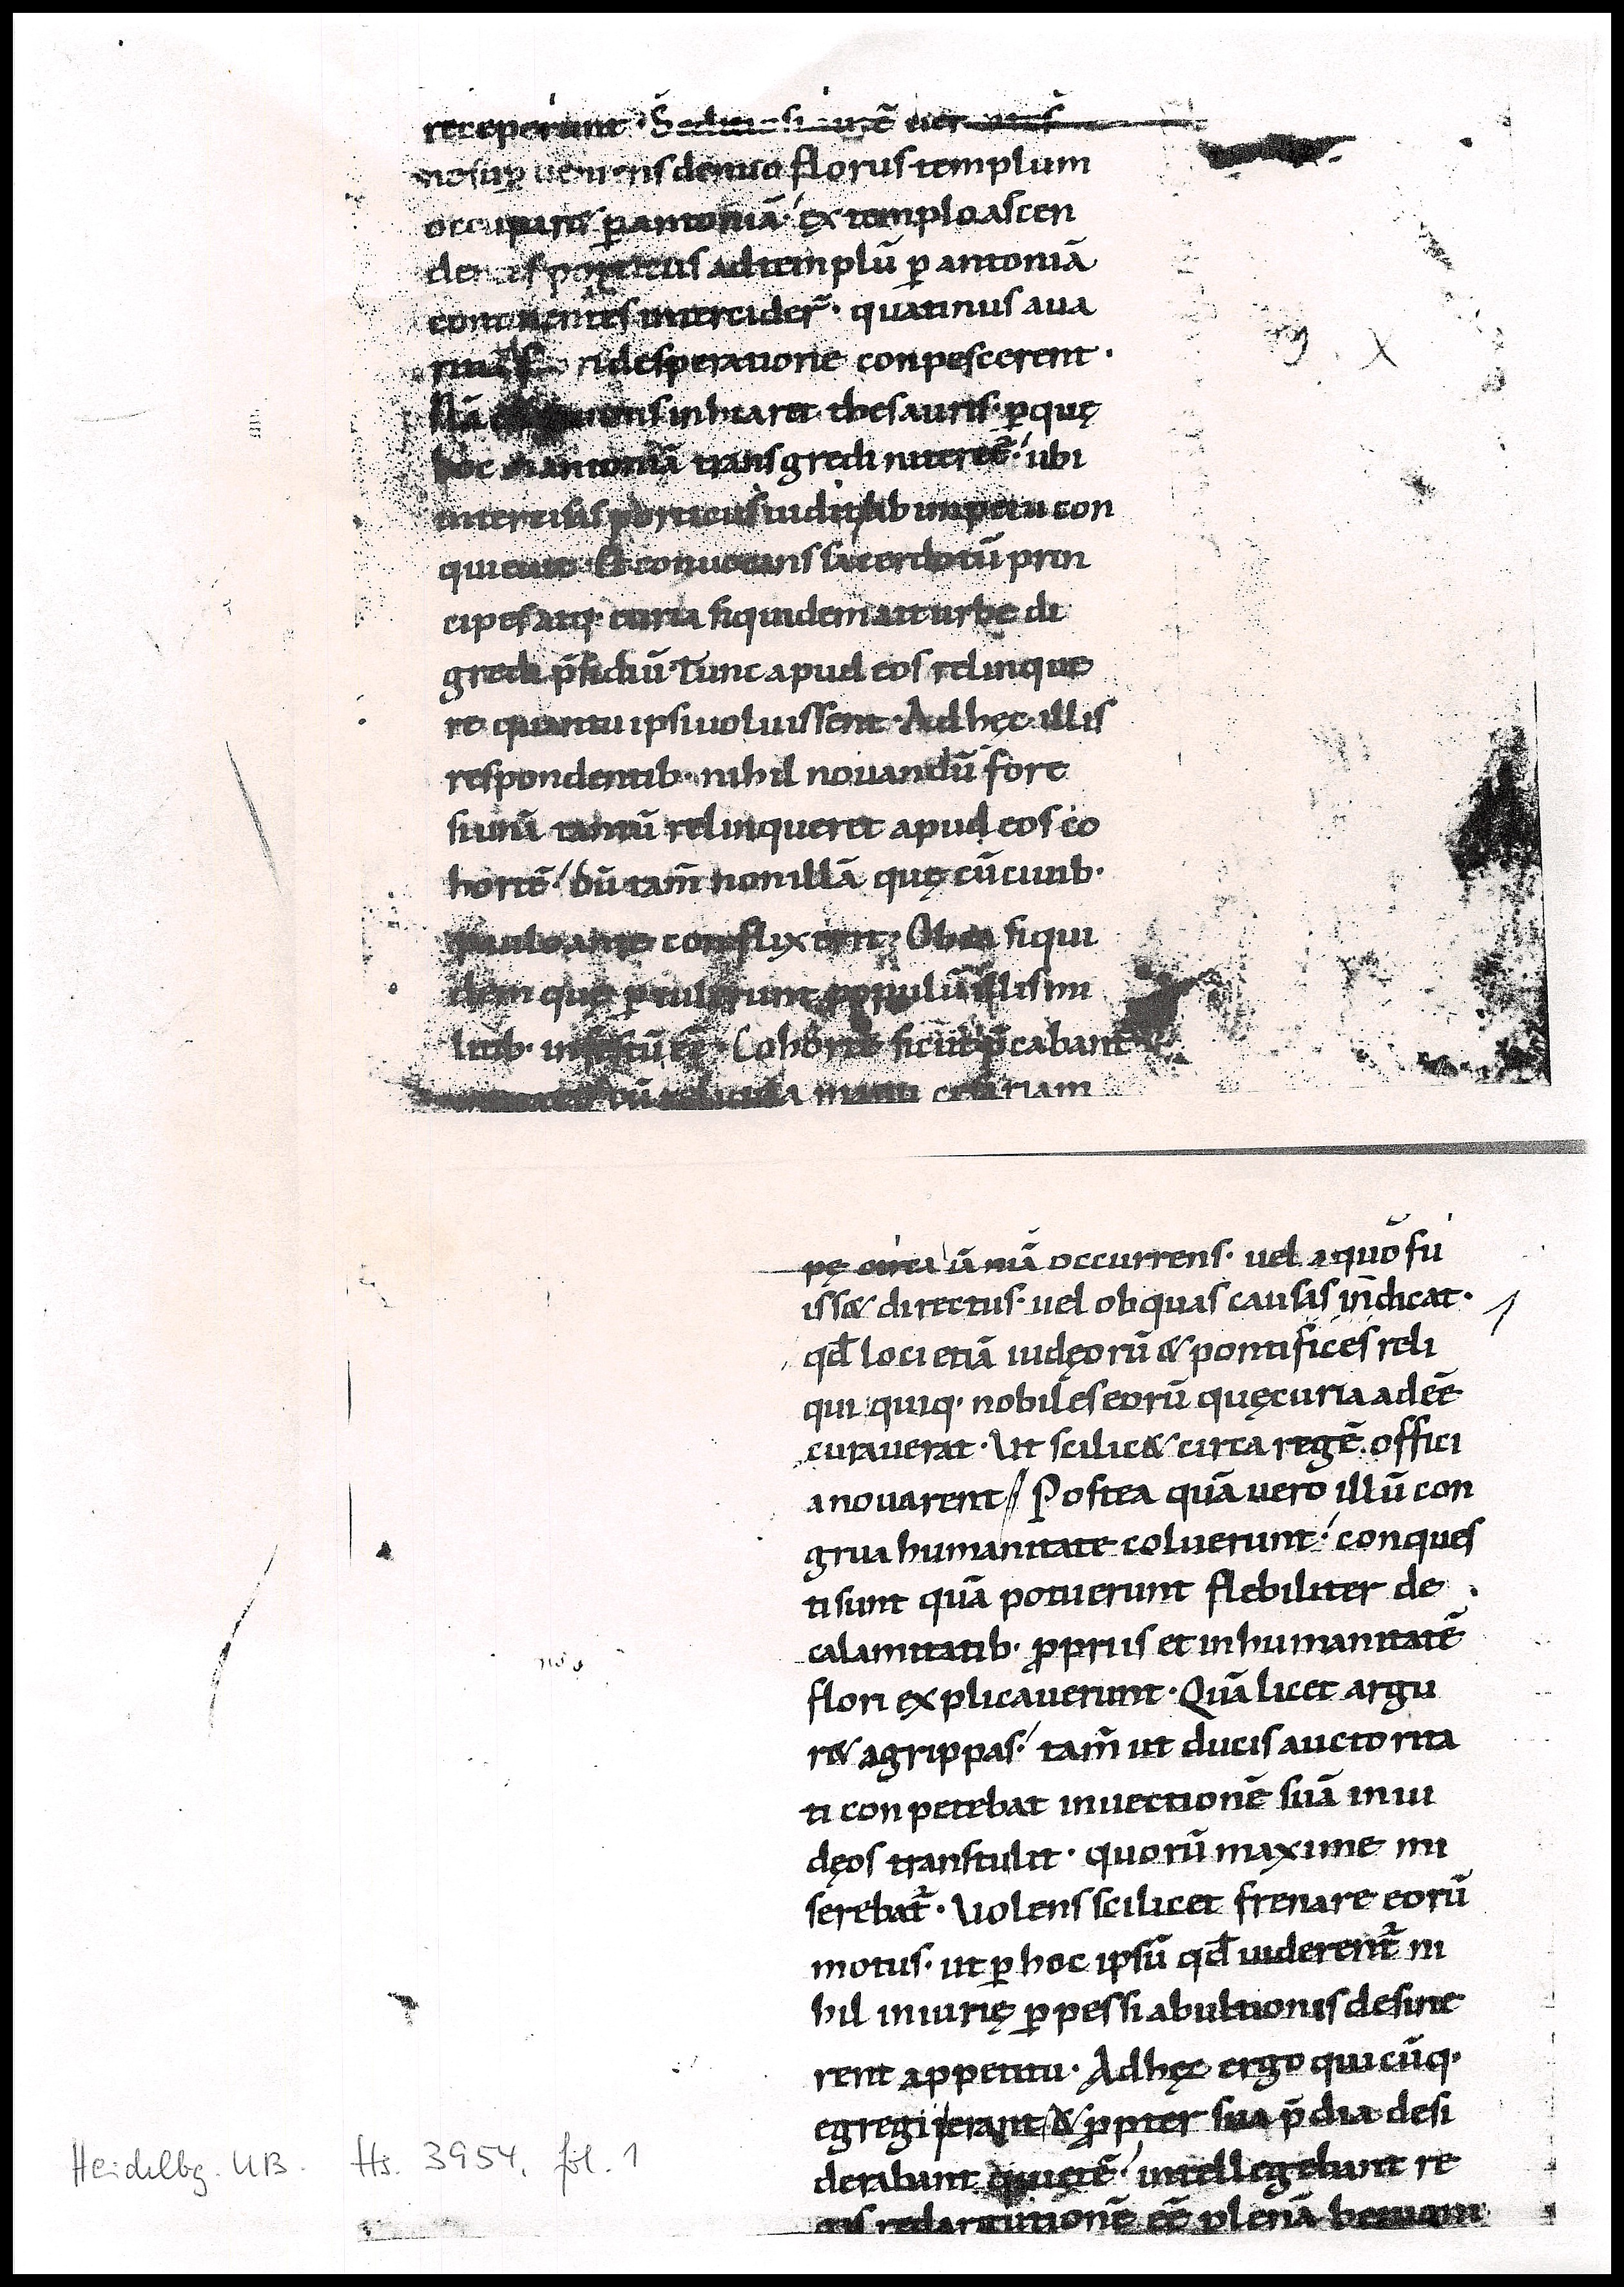 receperunt · Sediciosi u͞e ueriti s
nosup ueniens denuo florus templum
occuparꝫ p̱ antoniā·' ex templo ascen
dentes porticus ad templū p̱ antoniā
continentes intercider̄· quatinus aua
ritiā desperatione conpescerent ·
Nā inhiaret thesauris· p̱quę
hoc antoniā transgredi niteret̄·' ubi
intercisis porticus uidit ab impetu con
quieuit· & conuocans sacerdotū prin
cipes atq· curia siquidem ait urbe di
gredi p̄sidiū· Tunc apud eos relinque
re quantū ipsi uoluissent · Ad hęc illis
respondentib· nihil nouandū fore
si unā tantū relinqueret apud eos co
hortē·' dū tam̄ non illā quę cū ciuib·
paulo ante conflixerit· Ob ea siqui
dem quę p̱tulerunt populū illis mi
litib· infestū e͞e · Cohorte sicut p̄cabant
manu cęsariam
pę circa iā niā occurrens· uel a quo fu
iss& directus· uel ob quas causas indicat·
qđ loci etiā iudęorū & pontifices reli
qui quiq· nobiles eorū quę curia adee͞
curauerat · Ut scilic& circa regē offici
a nouarent / Postea quā uero illū con
grua humanitate coluerunt·' conques
ti sunt quā potuerunt flebiliter de
calamitatib· p̱priis et inhumanitatē
flori explicauerunt · Quā licet argu
r& agrippas·' tam̄ ut ducis auctorita
ti conpetebat inuectionē suā in iu
dęos transtulit · quorū maxime mi
serebat̄ · Uolens scilicet frenare eorū
motus· ut p̱ hoc ipsū qđ uiderent̄ ni
hil iniurię p̱pessi ab ultionis desine
rent appetitu · Ad hęc ergo quicūq·
egregii erant & p̱pter sua p̄dia desi
derabant quietē·' intellegebant re
gis redargutionē ee͞ plenā beniuom
1
Heidelbg. UB. Hs. 3954, fol. 1